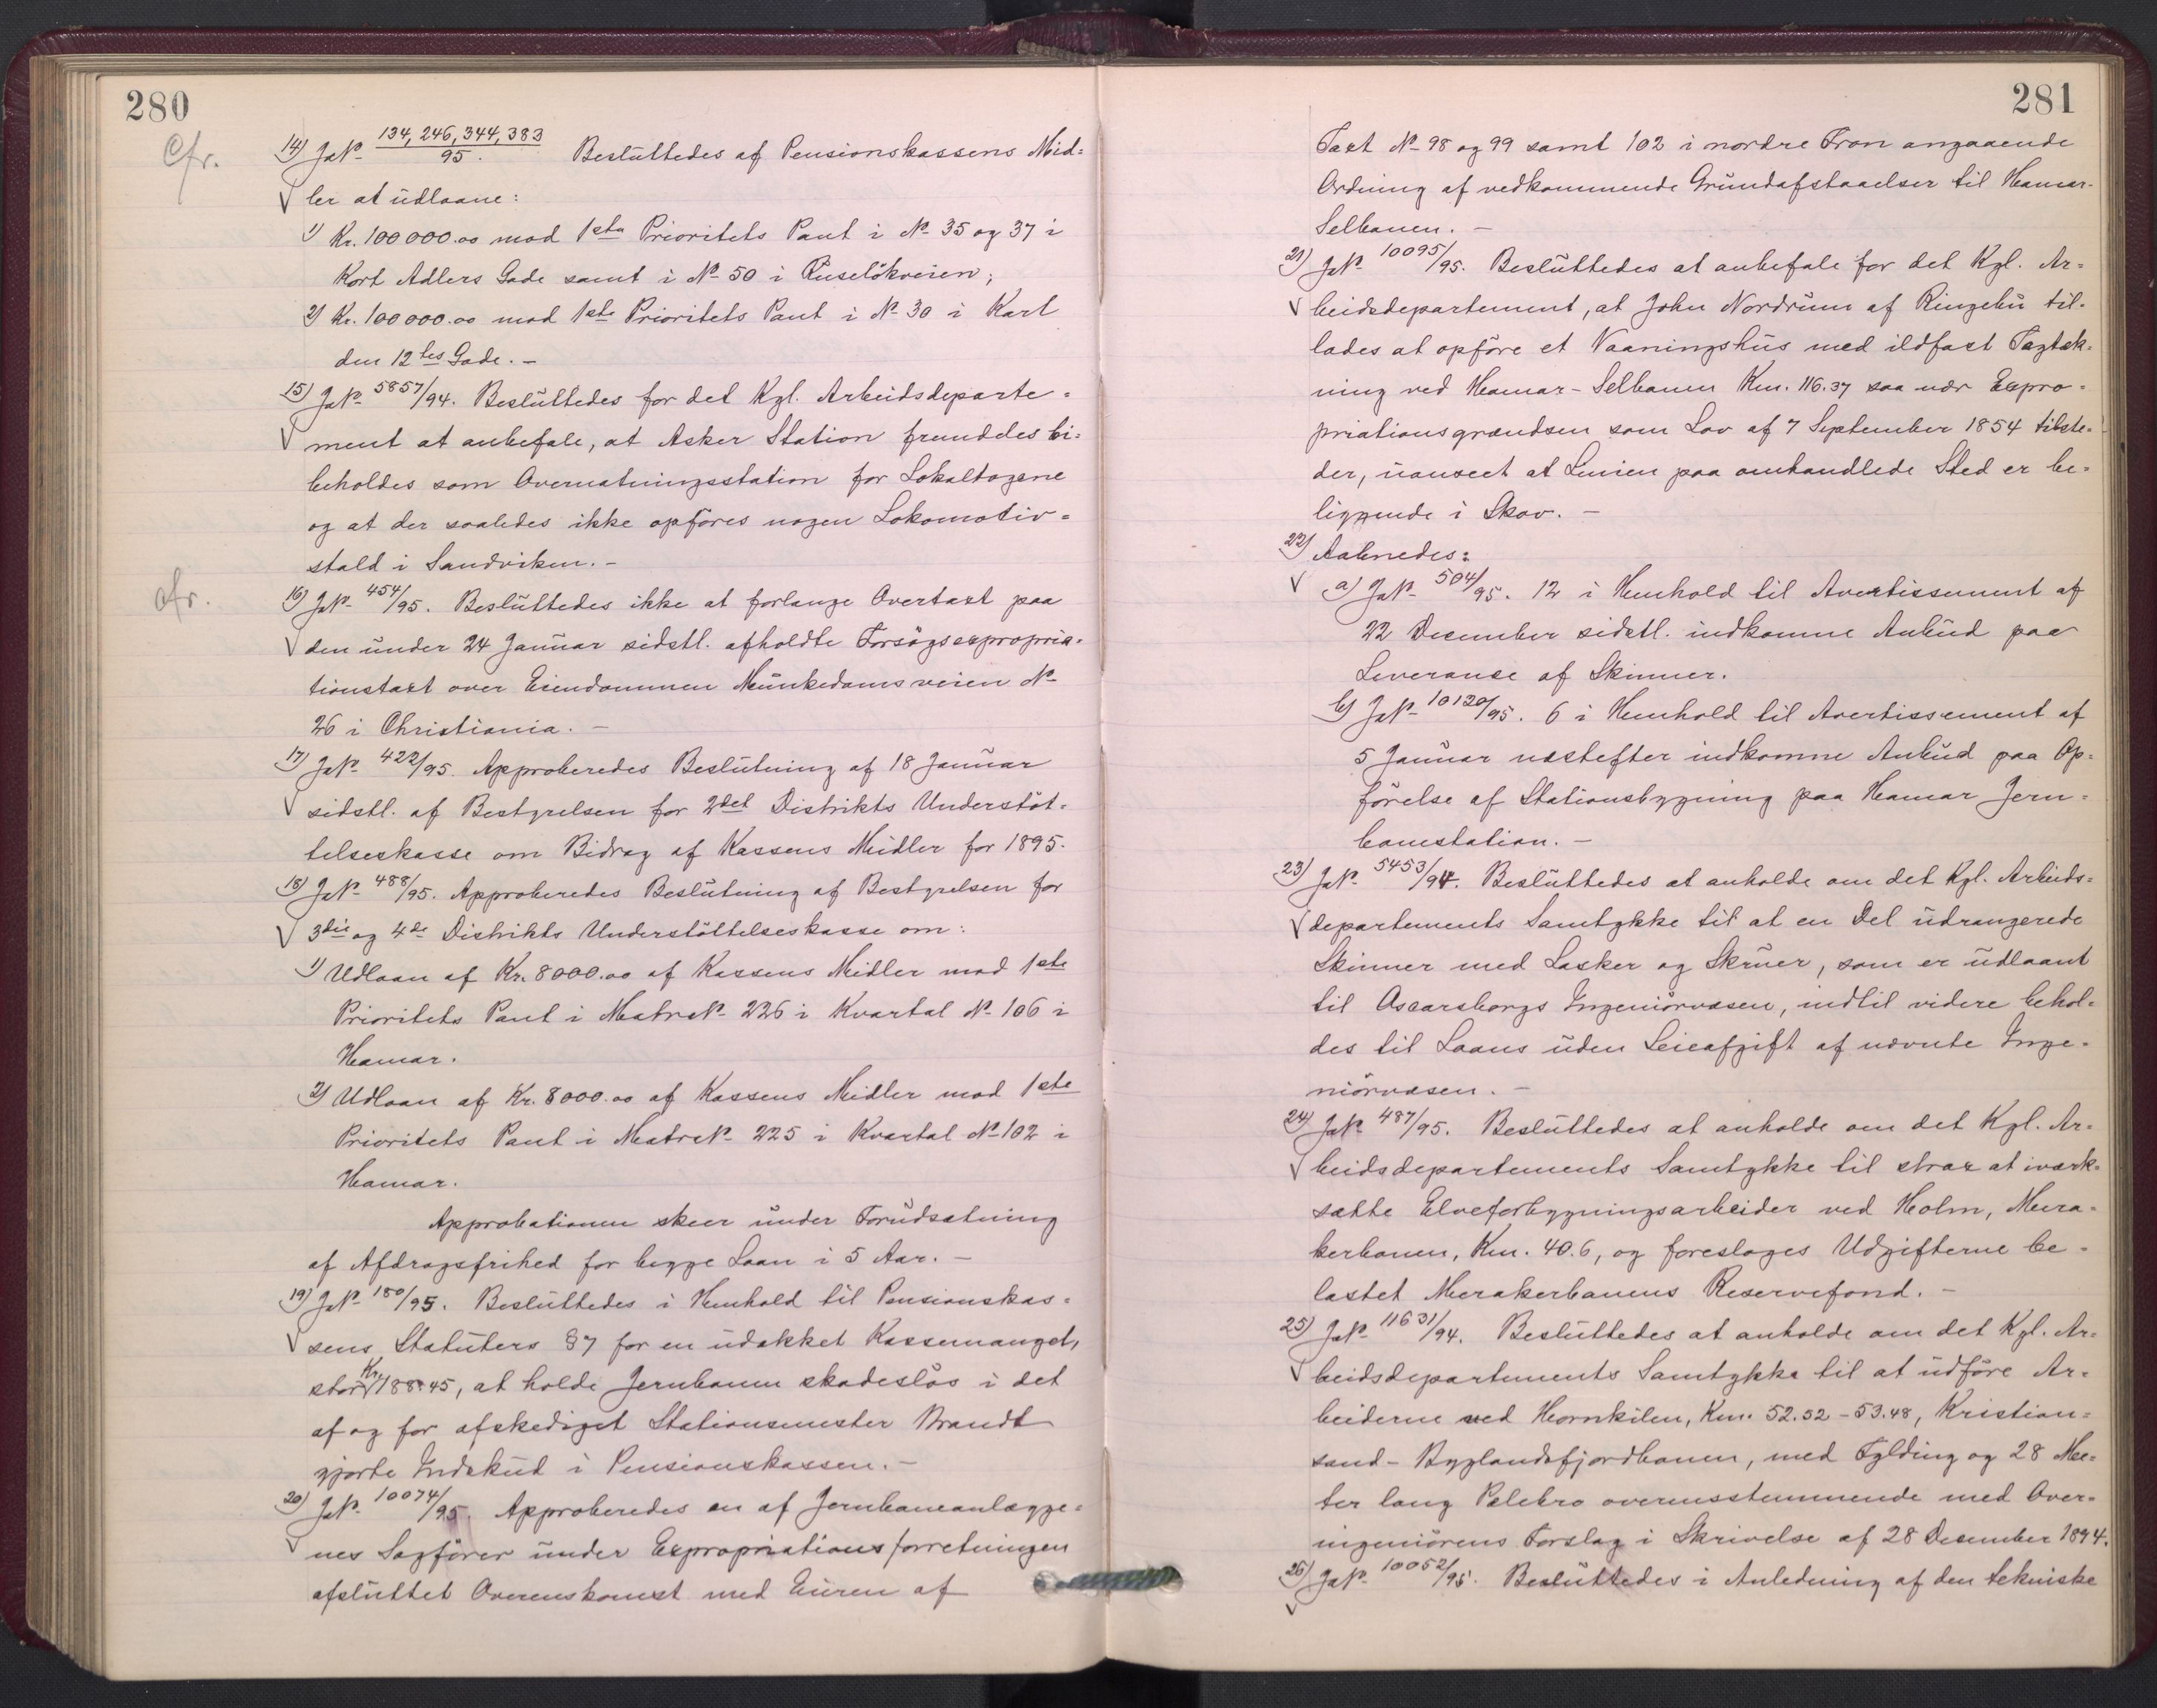 280
Cfr.
14) JNo 134, 246, 344, 383/95. Besluttedes af Pensionskassens Mid-
ler at udlaane:
1) Kr. 100 000.00 mod 1ste Prioritets Pant i No 35 og 37 i
Kort Adlers Gade samt i No 50 i Ruselökveien;
2) Kr. 100 000.00 mod 1ste Prioritets Pant i No 30 i Karl
den 12tes Gade. -
15) JNo 5857/94. Besluttedes for det Kgl. Arbeidsdeparte-
ment at anbefale, at Asker Station fremdeles bi-
beholdes som Overnatningsstation for Lokaltogene
og at der saaledes ikke opföres nogen Lokomotiv-
stald i Sandviken. -
cfr.
16) JNo 454/95. Besluttedes ikke at forlange Overtaxt paa
den under 24 Januar sidstl. afholdte Forsögsexpropria-
tionstaxt over Eiendommen Munkedamsveien No
26 i Christiania. -
17) JNo 422/95. Approberedes Beslutning af 18 Januar
sidstl. af Bestyrelsen for 2det Distrikts Understöt-
telseskasse om Bidrag af Kassens Midler for 1895.
18) JNo 488/95. Approberedes Beslutning af Bestyrelsen for
3die og 4de Distrikts Understöttelseskasse om:
1) Udlaan af Kr. 8000.00 af Kassens Midler mod 1ste
Prioritets Pant i Matr No 226 i Kvartal No 106 i
Hamar.
2) Udlaan af Kr. 8000.00 af Kassens Midler mod 1ste
Prioritets Pant i Matr No 225 i Kvartal No 102 i
Hamar.
Approbationen skeer under Forudsætning
af Afdragsfrihed for begge Laan i 5 Aar. -
19) JNo 180/95. Besluttedes i Henhold til Pensionskas-
sens Statuters §7 for en udækket Kassemangel,
stor Kr. 188.45, at holde Jernbanen skadeslös i det
af og for afskediget Stationsmester Brandt
gjorte Indskud i Pensionskassen. -
20) JNo 10074/95. Approberedes en af Jernbaneanlægge-
nes Sagförer under Expropriationsforretningen
afsluttet Overenskomst med Eieren af
281
Taxt No 98 og 99 samt 102 i nordre Fron angaaende
Ordning af vedkommende Grundafstaaelser til Hamar-
Selbanen. -
21) JNo 10095/95. Besluttedes at anbefale for det Kgl. Ar-
beidsdepartement, at John Nordrum af Ringebu til-
lades at opföre et Vaaningshus med ildfast Tagtæk-
ning ved Hamar-Selbanen Km. 116.37 saa nær Expro-
priationsgrændsen som Lov af 7 September 1854 tilste-
der, uanseet at Linien paa omhandlede Sted er be-
liggende i Skov. -
22) Aabnedes:
a) JNo 504/95. 12 i Henhold til Avertissement af
22 December sidstl. indkomne Anbud paa
Leveranse af Skinner.
b) JNo 10120/95. 6 i Henhold til Avertissement af
5 Januar næstefter indkomne Anbud paa Op-
förelse af Stationsbygning paa Hamar Jern-
banestation. -
23) JNo 5453/94. Besluttedes at anholde om det Kgl. Arbeids-
departements Samtykke til at en Del udrangerede
Skinner med Lasker og Skruer, som er udlaant
til Oscarsborgs Ingeniörvæsen, indtil videre behol-
des til Laans uden Leieafgift af nævnte Inge-
niörvæsen. -
24) JNo 487/95. Besluttedes at anholde om det Kgl. Ar-
beidsdepartements Samtykke til strax at iværk-
sætte Elveforbygningsarbeider ved Holm, Mera-
kerbanen, Km. 40.6, og foreslages Udgifterne be-
lastet Merakerbanens Reservefond. -
25) JNo 11631/94. Besluttedes at anholde om det Kgl. Ar-
beidsdepartements Samtykke til at udföre Ar-
beiderne ved Hornkilen, Km. 52.52 - 53.48, Kristian-
sand-Byglandsfjordbanen, med Fylding og 28 Me-
ter lang Pælebro overensstemmende med Over-
ingeniörens Forslag i Skrivelse af 28 December 1894.
26) JNo 10052/95. Besluttedes i Anledning af den tekniske